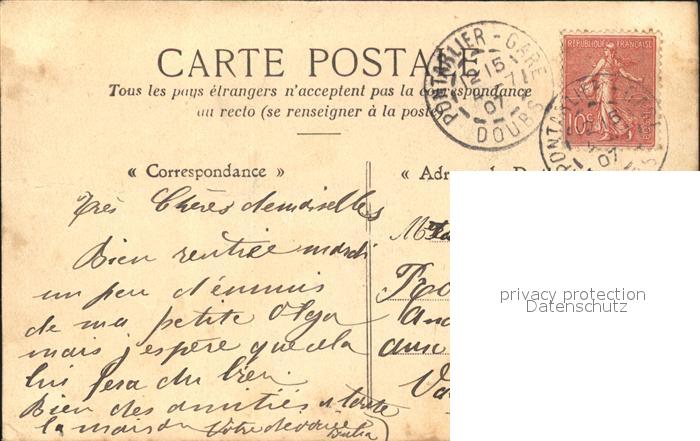 CARTE POSTALE
Tous les pays étrangers n'acceptent pas la correspondance
au recto (se renseigner à la poste)
« Correspondance »
« Ad
Très Chères demoiselles
Bien rentrée mardi
un peu d'ennuis
de ma petite Olga
mais j'espère que cela
lui fera du bien
Bien des amitiés a toute
la maison Votre dévouée
PONTARLIER - GARE
15
07
DOUBS
REPUBLIQUE FRANÇAISE
10c
PONTARLIER
07
privacy protection
Datenschutz